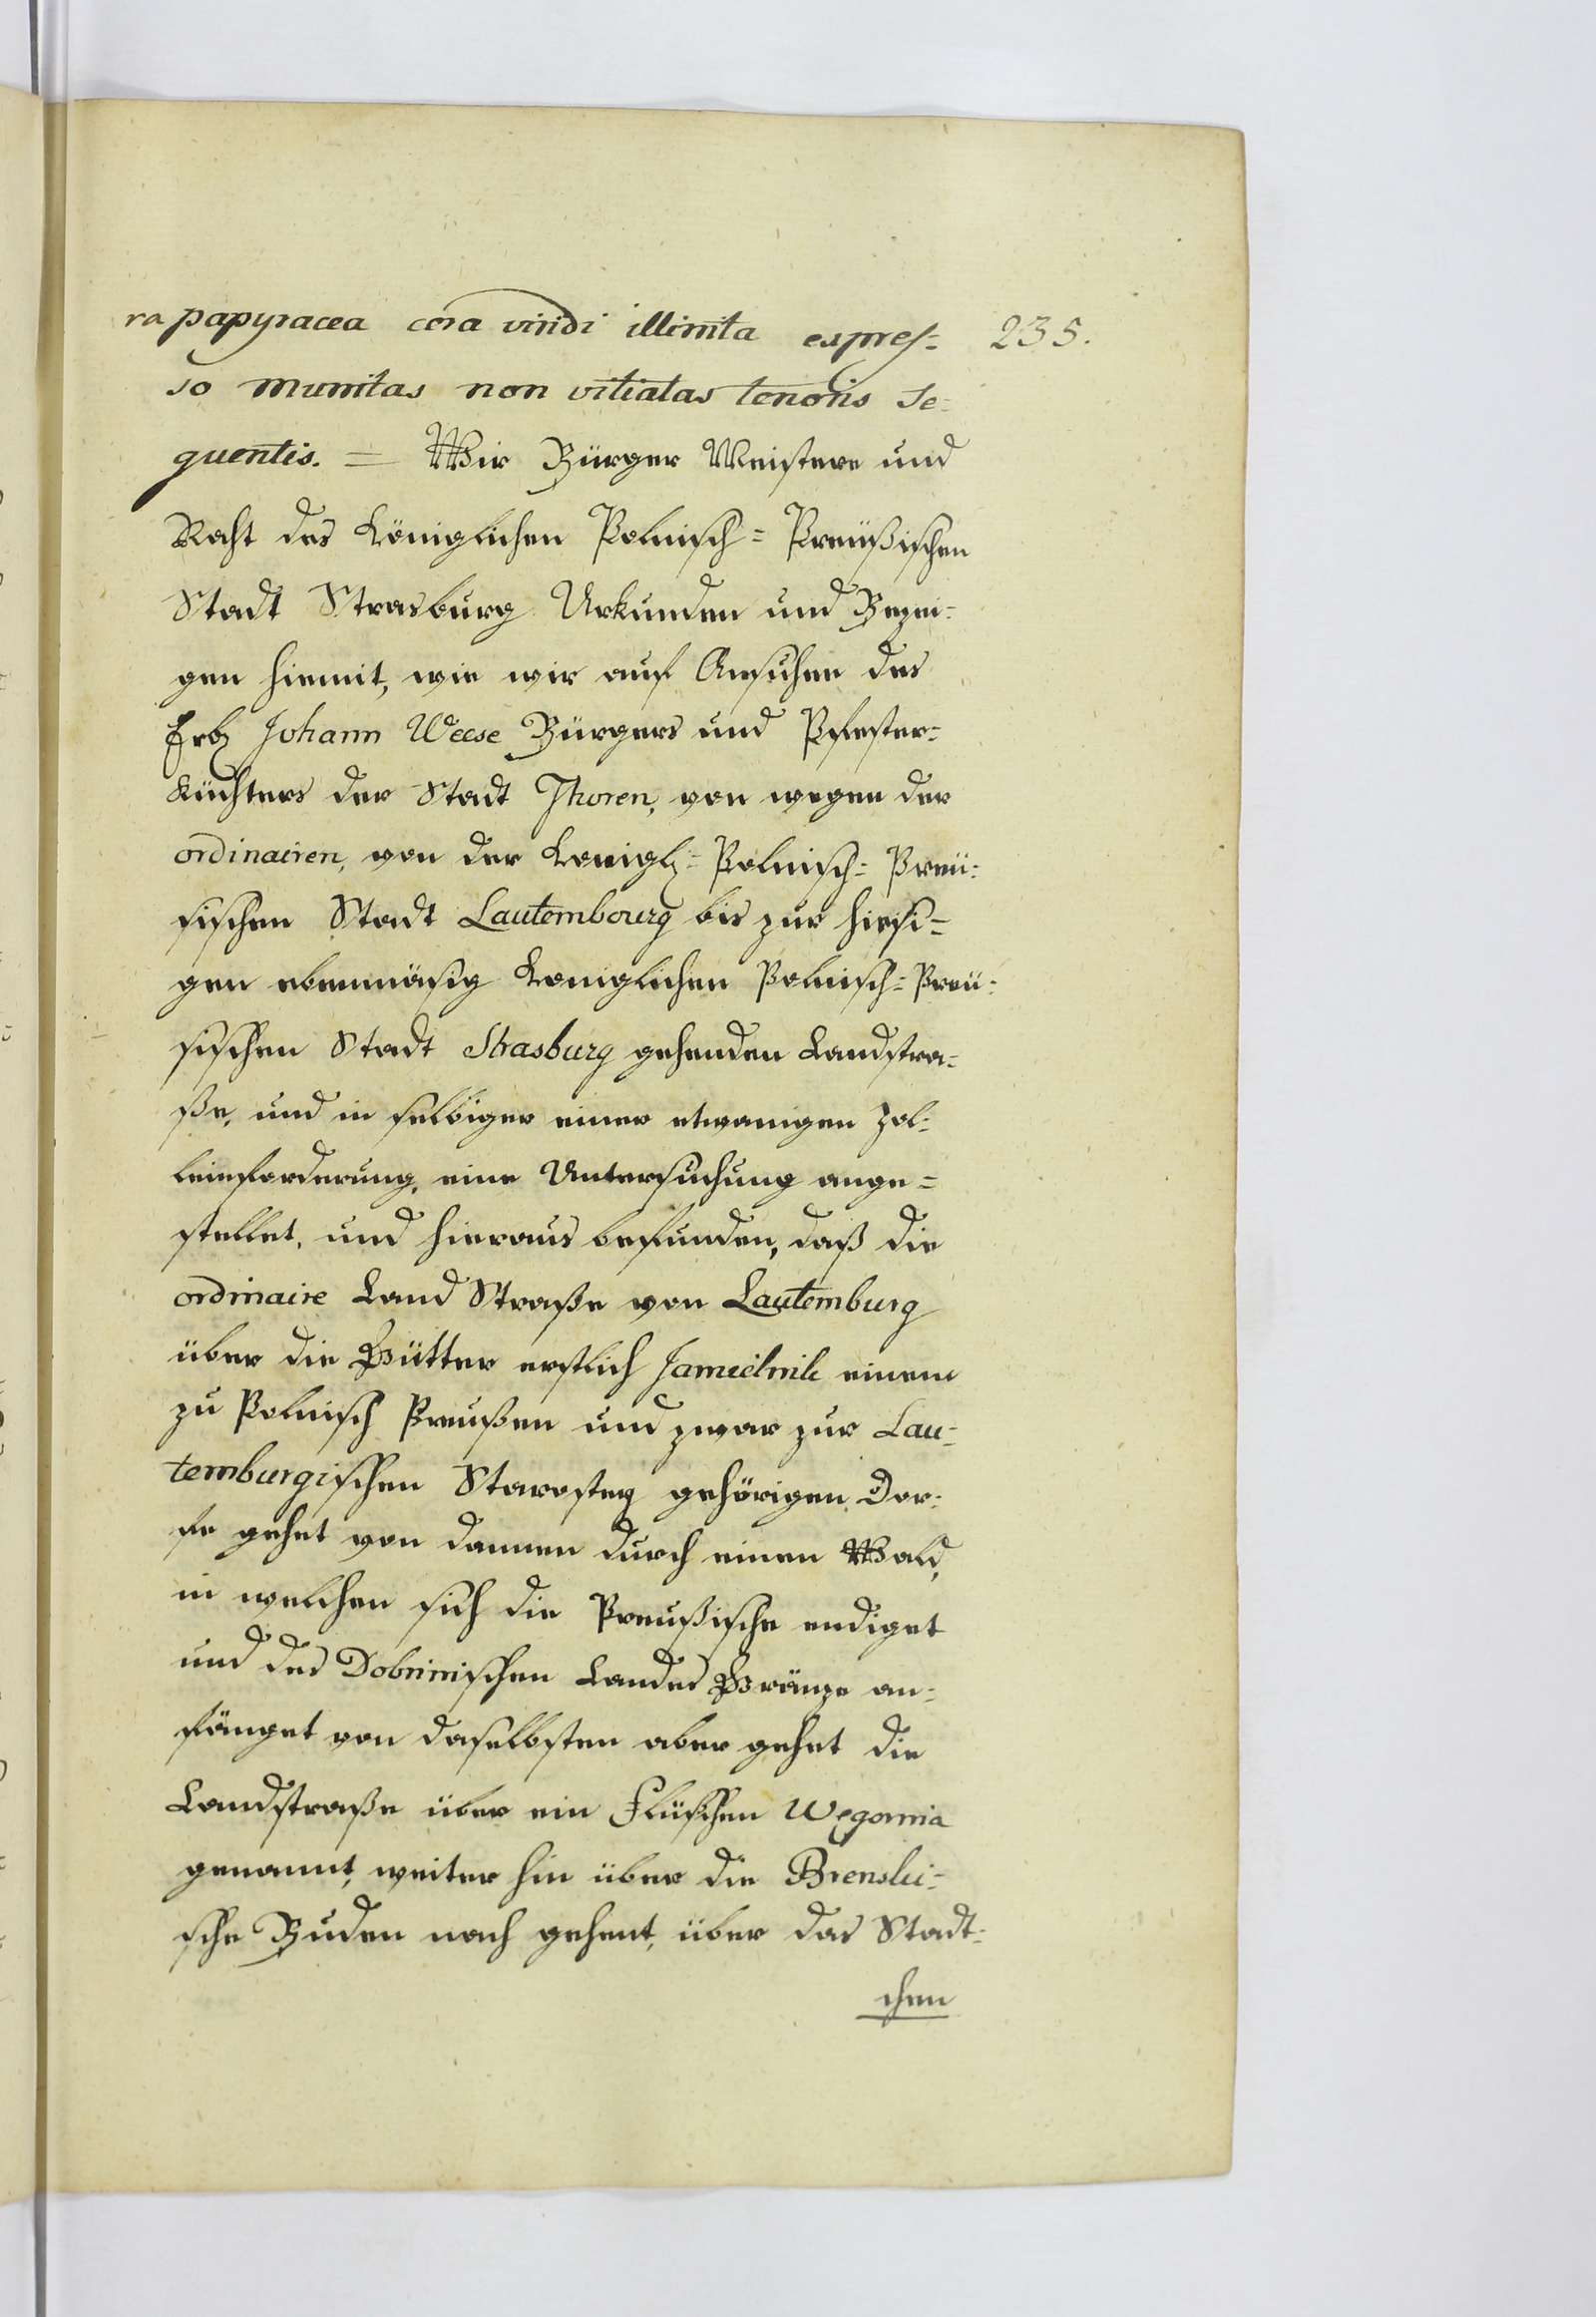 ra papyracea cera viridi illinita expres= 235.
so munitas non vitiatas tenoris Se=
quentis. = Wir Bürger Meistere und
Raht des Königlichen Polnisch= Preüßischen
Stadt Strasburg Urkunden und Bezei=
gen hiemit, wie wir auf Ansuchen des
Johann Weese Bürgers und Pfeffer=
Küchlers der Stadt Thoren, von wegen der
ordinairen, von der Königl= Polnisch= Preü=
sischen Stadt Lautembourg bis zur hiesi=
gen ebenmäsig Koniglichen Polnisch= Preü=
sischen Stadt Strasburg gehenden Landstra=
ße, und in selbiger einer etwanigen Zol=
leinforderung, eine Untersuchung ange=
stellet, und hieraus befunden, daß die
ordinaire Land Straße von Lautemburg
über die Gütter erstlich Jamielnik einem
zu Polnisch Preußen und zwar zur Lau=
temburgischen Starostey gehörigen Dor=
fe gehet von dannen durch einen Wald,
in welchen sich die Preußische endiget
und des Dobrinischen Landes Gränze an=
fänget von daselbsten aber gehet die
Landstraße über ein Flüschen Wegornia
genannt, weiter hin über die Brenski=
sche Buden nach gehent, über das Stadt=
chen